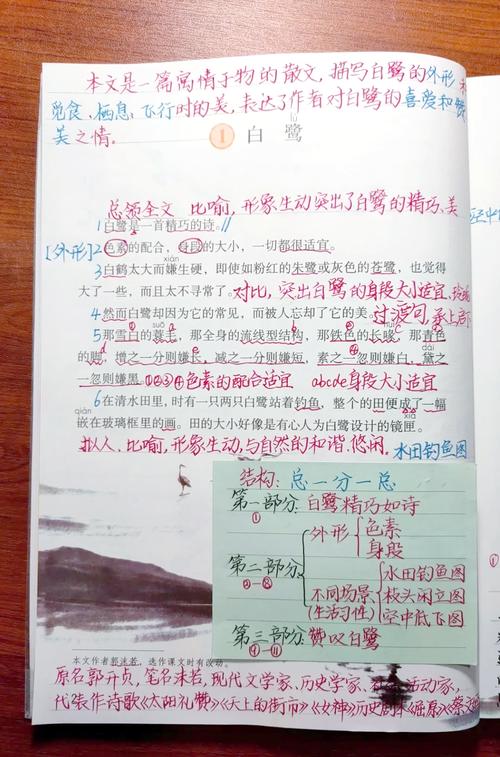 本文是一篇寓情于物的散文,描写白鹭的外形和
觅食、栖息、飞行时的美,表达了作者对白鹭的喜爱和赞
美之情。
lù
1 白 鹭
总领全文 比喻,形象生动突出了白鹭的精巧、美
1白鹭是一首精巧的诗。//
[外形]2色素的配合,身段的大小,一切都很适宜。
xián
3白鹤太大而嫌生硬,即使如粉红的朱鹭或灰色的苍鹭,也觉得
大了一些,而且太不寻常了。对比,突出白鹭的身段大小适宜、
4然而白鹭却因为它的常见,而被人忘却了它的美。过渡句,承上启
suō
5那雪白的蓑毛,那全身的流线型结构,那铁色的长喙,那青色
的脚,增之一分则嫌长,减之一分则嫌短,素之一忽则嫌白,黛之
一忽则嫌黑。①②③④色素的配合适宜 abcde身段大小适宜
6在清水田里,时有一只两只白鹭站着钓鱼,整个的田便成了一幅
qiàn
嵌在玻璃框里的画。田的大小好像是有心人为白鹭设计的镜匣。
拟人、比喻,形象生动,与自然的和谐、悠闲。 水田钓鱼图
结构:总一分一总
第一部分:白鹭精巧如诗
①
外形 色素
身段
第二部分:
②-⑧
不同场景
(生活习性)
水田钓鱼图
枝头闲立图
空中低飞图
第三部分:赞叹白鹭
⑨-⑪
本文作者郭沫若,选作课文时有改动。
原名郭开贞,笔名沫若,现代文学家、历史学家、社会活动家,
代表作诗歌《太阳礼赞》《天上的街市》《女神》历史剧本《屈原》《蔡文